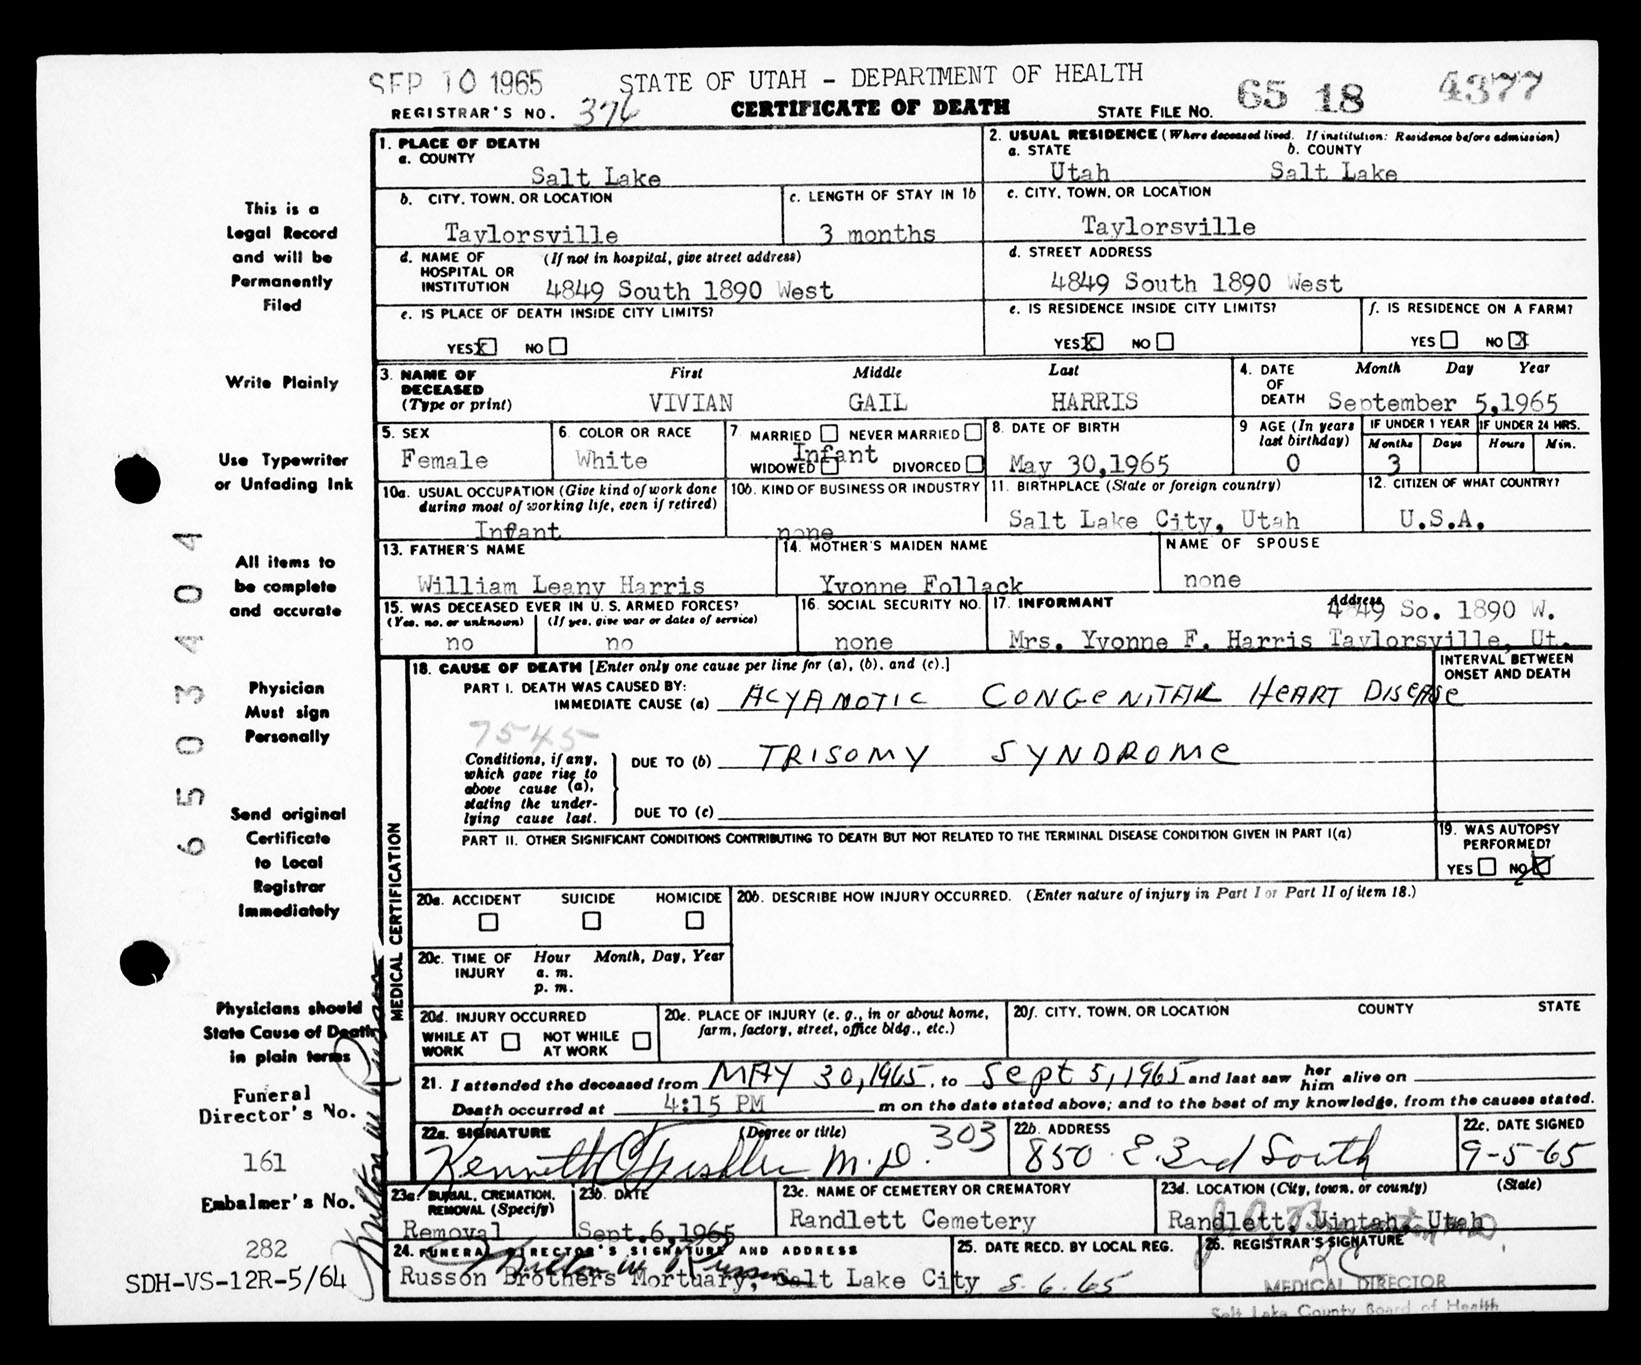 SEP 10 1965 STATE OF UTAH - DEPARTMENT OF HEALTH 65 18 4377
REGISTRAR'S NO. 376 CERTIFICATE OF DEATH STATE FILE NO.
1. PLACE OF DEATH
a. COUNTY
Salt Lake
2. USUAL RESIDENCE (Where deceased lived. If institution: Residence before admission)
a. STATE b. COUNTY
Utah Salt Lake
b. CITY, TOWN, OR LOCATION
Taylorsville
c. LENGTH OF STAY IN 1b
3 months
c. CITY, TOWN, OR LOCATION
Taylorsville
d. NAME OF HOSPITAL OR INSTITUTION (If not in hospital, give street address)
4849 South 1890 West
d. STREET ADDRESS
4849 South 1890 West
e. IS PLACE OF DEATH INSIDE CITY LIMITS?
YES X NO
e. IS RESIDENCE INSIDE CITY LIMITS?
YES X NO
f. IS RESIDENCE ON A FARM?
YES NO X
3. NAME OF DECEASED (Type or print)
First Middle Last
VIVIAN GAIL HARRIS
4. DATE OF DEATH
Month Day Year
September 5,1965
5. SEX
Female
6. COLOR OR RACE
White
7. MARRIED NEVER MARRIED
Infant
WIDOWED DIVORCED
8. DATE OF BIRTH
May 30,1965
9 AGE (In years last birthday)
0
IF UNDER 1 YEAR
Months Days
3
IF UNDER 24 HRS.
Hours Min.
10a. USUAL OCCUPATION (Give kind of work done during most of working life, even if retired)
Infant
10b. KIND OF BUSINESS OR INDUSTRY
none
11. BIRTHPLACE (State or foreign country)
Salt Lake City, Utah
12. CITIZEN OF WHAT COUNTRY?
U.S.A.
13. FATHER'S NAME
William Leany Harris
14. MOTHER'S MAIDEN NAME
Yvonne Follack
NAME OF SPOUSE
none
15. WAS DECEASED EVER IN U. S. ARMED FORCES?
(Yes, no, or unknown) (If yes, give war or dates of service)
no no
16. SOCIAL SECURITY NO.
none
17. INFORMANT Address
4849 So. 1890 W.
Mrs. Yvonne F. Harris Taylorsville, Ut.
18. CAUSE OF DEATH [Enter only one cause per line for (a), (b), and (c).]
INTERVAL BETWEEN ONSET AND DEATH
PART I. DEATH WAS CAUSED BY:
IMMEDIATE CAUSE (a) ACYANOTIC CONGENITAL HEART DISEASE
7545
Conditions, if any, which gave rise to above cause (a), stating the underlying cause last.
DUE TO (b) TRISOMY SYNDROME
DUE TO (c)
PART II. OTHER SIGNIFICANT CONDITIONS CONTRIBUTING TO DEATH BUT NOT RELATED TO THE TERMINAL DISEASE CONDITION GIVEN IN PART I(a)
19. WAS AUTOPSY PERFORMED?
YES NO X
20a. ACCIDENT SUICIDE HOMICIDE
20b. DESCRIBE HOW INJURY OCCURRED. (Enter nature of injury in Part I or Part II of item 18.)
20c. TIME OF INJURY Hour Month, Day, Year
a. m.
p. m.
20d. INJURY OCCURRED
WHILE AT WORK NOT WHILE AT WORK
20e. PLACE OF INJURY (e. g., in or about home, farm, factory, street, office bldg., etc.)
20f. CITY, TOWN, OR LOCATION COUNTY STATE
21. I attended the deceased from MAY 30, 1965, to Sept 5, 1965 and last saw her him alive on
Death occurred at 4:15 PM m on the date stated above; and to the best of my knowledge, from the causes stated.
22a. SIGNATURE (Degree or title) 303
Kenneth M.D.
22b. ADDRESS
850 E. 3rd South
22c. DATE SIGNED
9-5-65
23a. BURIAL, CREMATION, REMOVAL (Specify)
Removal
23b. DATE
Sept.6,1965
23c. NAME OF CEMETERY OR CREMATORY
Randlett Cemetery
23d. LOCATION (City, town, or county) (State)
Randlett, Uintah, Utah
24. FUNERAL DIRECTOR'S SIGNATURE AND ADDRESS
Milton W Russon
Russon Brothers Mortuary, Salt Lake City
25. DATE RECD. BY LOCAL REG.
26. REGISTRAR'S SIGNATURE
MEDICAL DIRECTOR
Salt Lake County Board of Health
This is a
Legal Record
and will be
Permanently
Filed
Write Plainly
Use Typewriter
or Unfading Ink
All items to
be complete
and accurate
Physician
Must sign
Personally
Send original
Certificate
to Local
Registrar
Immediately
Physicians should
State Cause of Death
in plain terms
Funeral
Director's No.
161
Embalmer's No.
282
SDH-VS-12R-5/64
650 3404
MEDICAL CERTIFICATION
Milton W Russon